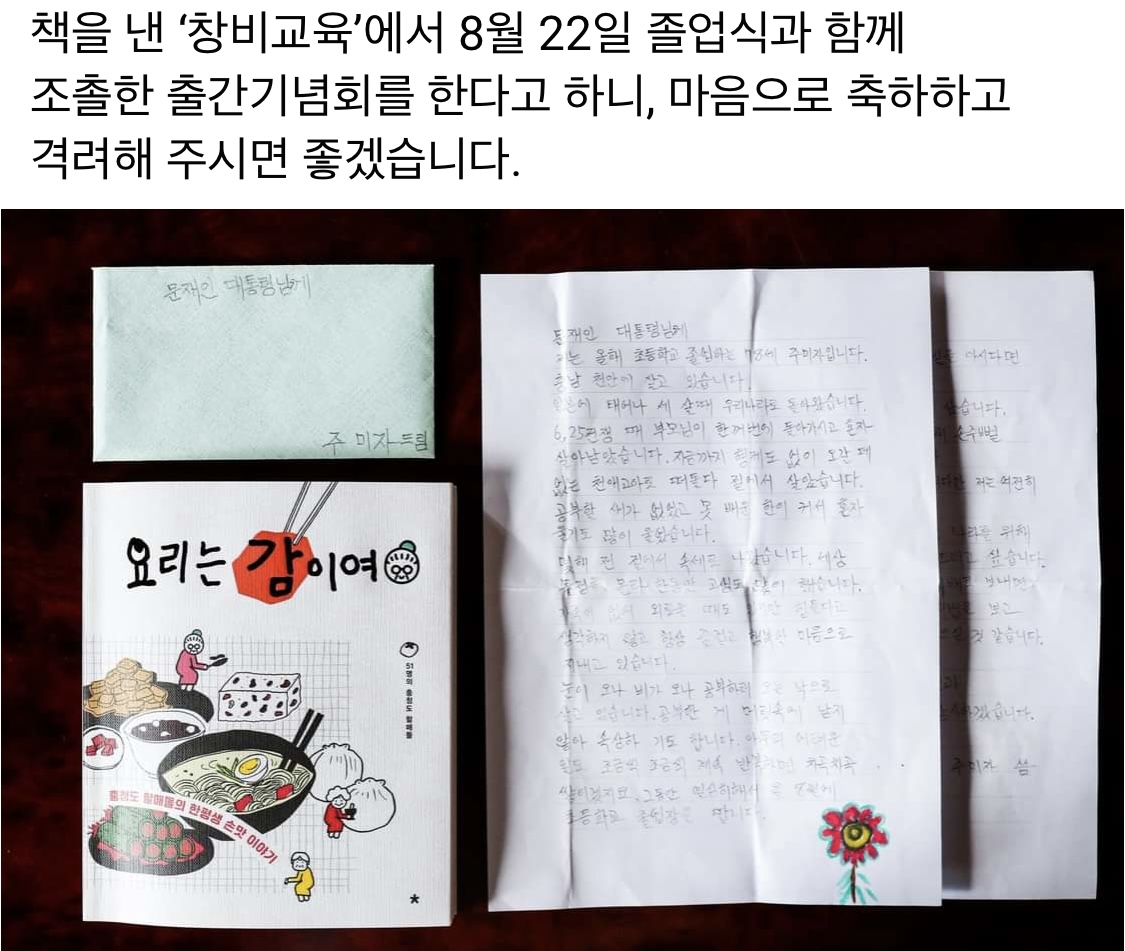 책을 낸 ‘창비교육’에서 8월 22일 졸업식과 함께
조촐한 출간기념회를 한다고 하니, 마음으로 축하하고
격려해 주시면 좋겠습니다.
문재인 대통령님께
주 미자 드림
요리는 감이여
51명의 충청도 할매들
충청도 할매들의 한평생 손맛 이야기
문재인 대통령님께
저는 올해 초등학교 졸업하는 78세 주미자입니다.
충남 천안에 살고 있습니다.
일본에 태어나 세 살때 우리나라로 돌아왔습니다.
6.25전쟁 때 부모님이 한꺼번에 돌아가시고 혼자
살아남았습니다. 지금까지 형제도 없이 오간 데
없는 천애고아로 떠돌다 살았습니다.
공부할 새가 없었고 못 배운 한이 커서 혼자
울기도 많이 울었습니다.
몇해 전 전에서 나왔습니다. 세상
한동안 고생도 많이 했습니다.
가족이 없어 외로울 때도
생각하지 않고 항상 즐겁고 행복한 마음으로
지내고 있습니다.
눈이 오나 비가 오나 공부하러 오는 낙으로
살고 있습니다. 공부한 게 머릿속에 남지
않아 속상하기도 합니다. 아무리 어려운
일도 조금씩 조금씩 계속 반복하면 차곡차곡
쌓이겠지요. 그동안 열심히해서 올 8월에
초등학교 졸업장을 땁니다.
아시다면
싶습니다.
저는 여전히
나라를 위해
드리고 싶습니다.
보내면
보고
것 같습니다.
주미자 씀